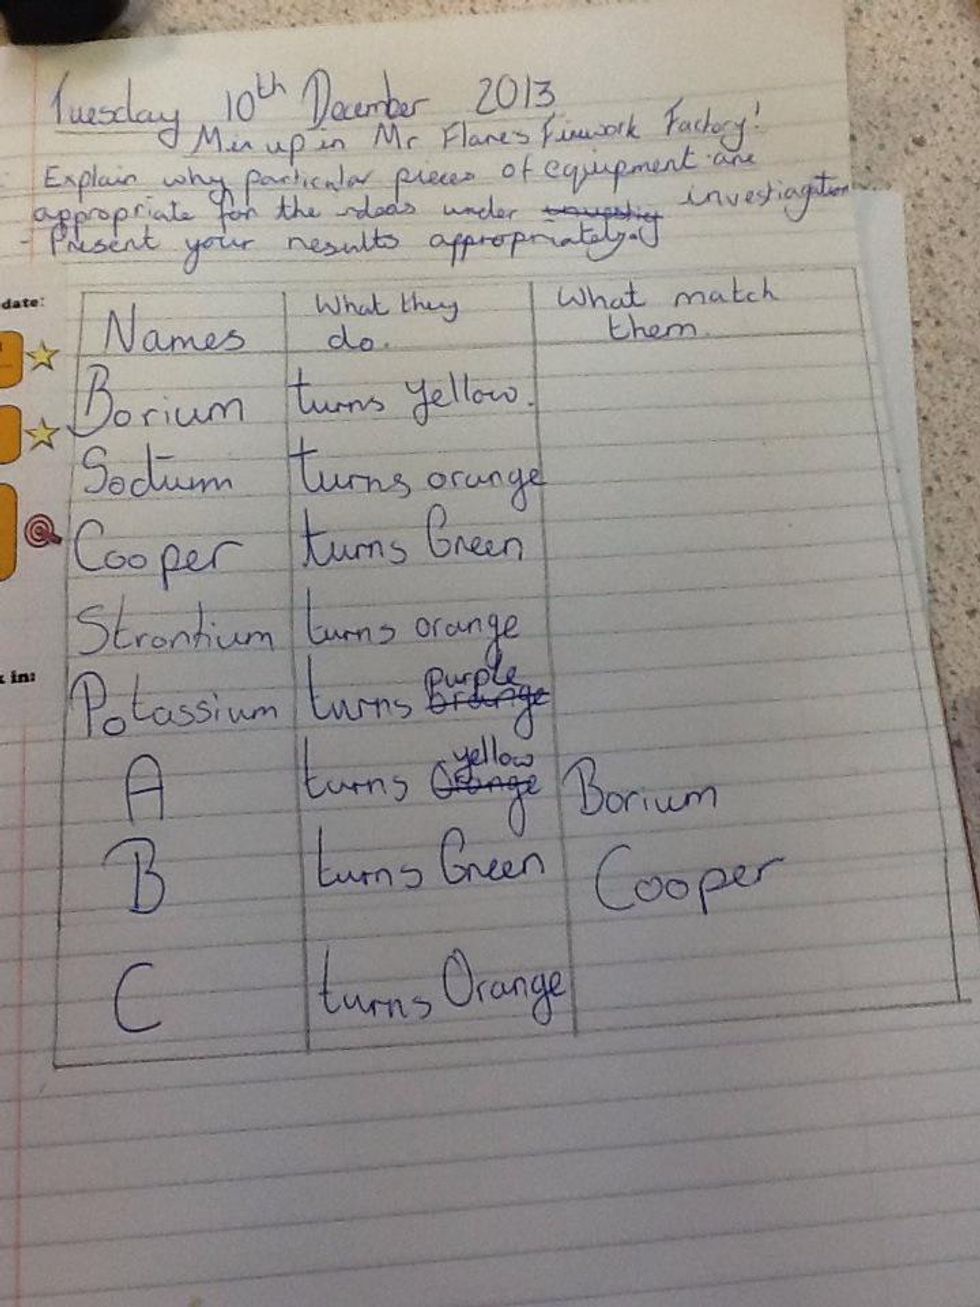 Tuesday 10th December 2013
Mix up in Mr Flame's Firework Factory!
Explain why particular pieces of equipment are
appropriate for the ideas under investiagation
- Present your results appropriately.
date:
Names What they do. What match them.
Borium turns yellow.
Sodium turns orange
Cooper turns Green
Strontium turns orange
k in:
Potassium turns purple orange
A turns yellow Orange Borium
B turns Green Cooper
C turns Orange